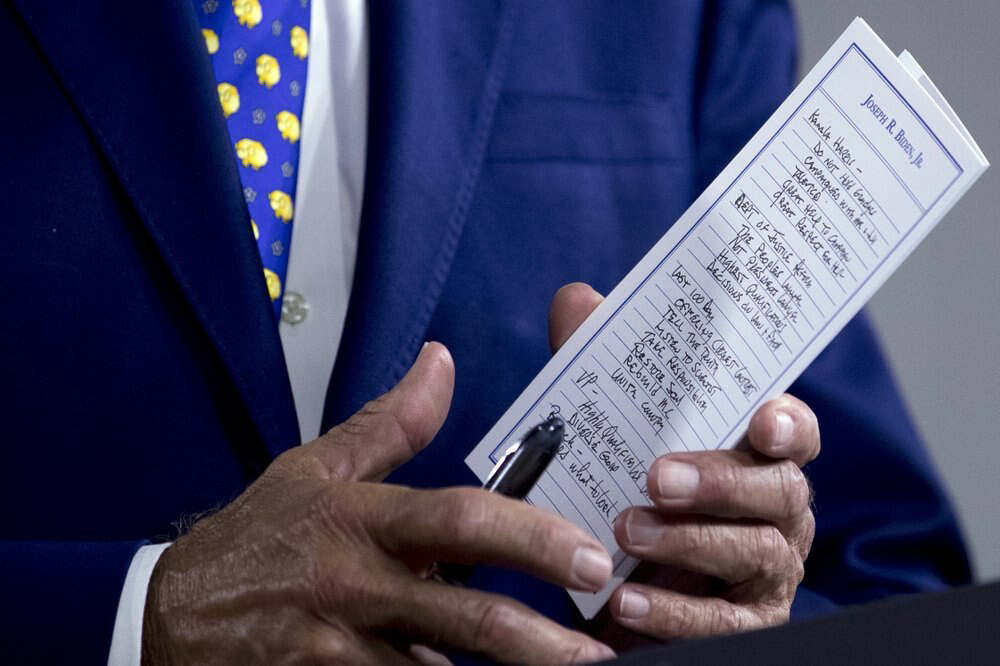 JOSEPH R. BIDEN, JR.
KAMALA HARRIS -
DO NOT HOLD GRUDGES
CAMPAIGNED WITH ME & JILL
TALENTED
GREAT HELP TO CAMPAIGN
GREAT RESPECT FOR HER
DEPT OF JUSTICE
THE PEOPLES LAWYER
NOT PRESIDENTS LAWYER
HIGHEST QUALIFICATIONS
DECISIONS ON LAW & FACT
LAST 100 DAY
OFFERING CLEAREST CONTRAST
TELL THE TRUTH
LISTEN TO SCIENTIST
TAKE RESPONSIBILITY
RESTORE SOUL
REBUILD M.C.
UNITE COUNTRY
VP - HIGHLY QUALIFIED
DIVERSE GROUP
WHAT TO